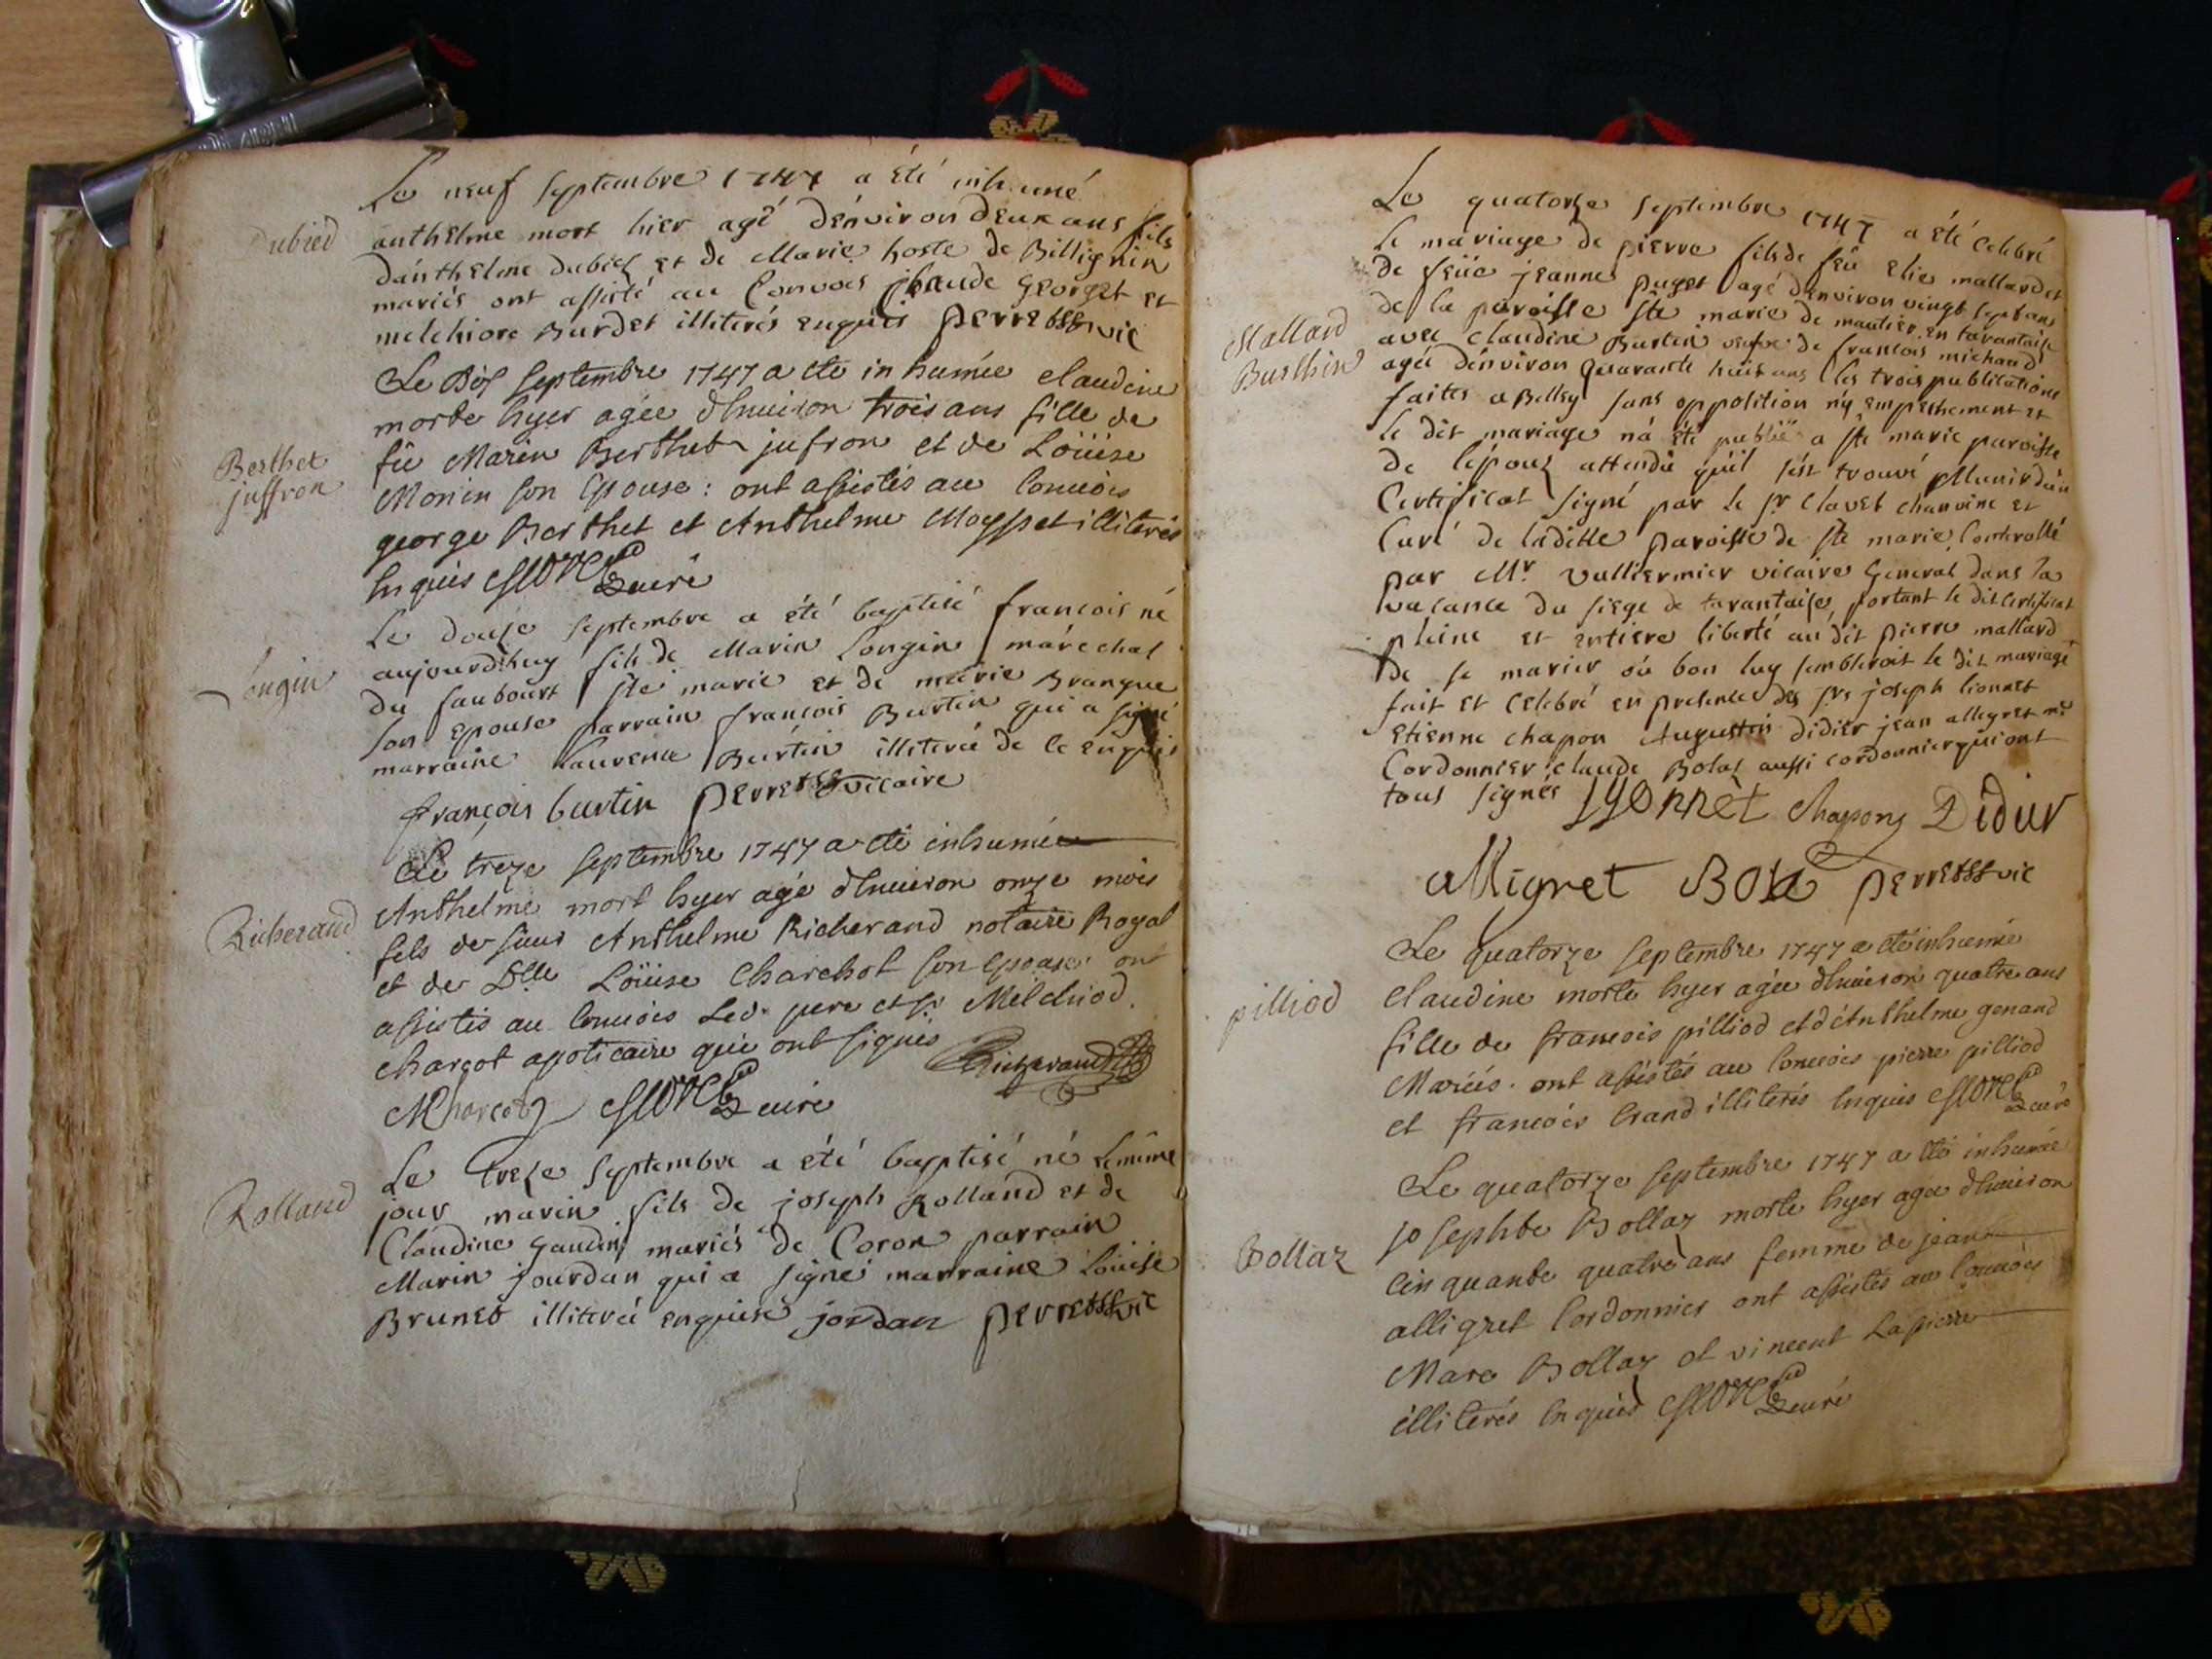 Le neuf septembre 1747 a été inhumé
Dubied
anthelme mort hier agé d'environ deux ans fils
d'anthelme dubiez et de Marie hoste de Billignin
mariés ont assisté au Convois Claude Georget et
melchiore Burdet illiterés enquis perret vic
Le Dix septembre 1747 a ete inhumée claudine
morte hyer agée d'huuiron trois ans fille de
Berthet
juffron
fû Marin Berthet jufron et de Loüise
Monin son Epouse : ont assistés au Conuois
george Berthet et Anthelme Moysset illiterés
Enquis curé
Le douse septembre a été baptisé francois né
Longin
aujourd'huy fils de Marin Longin maréchal
du faubourt ste marie et de marie Brangue
son epouse parrain francois Burtin qui a signé
marraine Laurence Burtin illiterée de ce enquis
françois burtin perret vicaire
Le treze septembre 1747 a eté inhumée
Richerand
Anthelme mort hyer agé d'huuiron onze mois
fils de sieur Anthelme Richerand notaire Royal
et de Dlle Loüise Charchot son Epouse ont
assistés au Conuois Led. pere et sr Melchiod
Charcot apoticaire qui ont signés Richerand
MCharcot curé
Le treze septembre a été baptisé né le même
Rolland
jour marin fils de joseph Rolland et de
Claudine Gaudin mariés de Coron parrain
Marin jourdan qui a signé marraine Louise
Brunet illiterée enquise jordan perret vic
Le quatorze septembre 1747 a été celebré
le mariage de pierre fils de feu Elie mallard et
de feüe jeanne puget agé d'environ vingt sept ans
Mallard
Burthin
de la paroisse ste marie de moutier en tarantaise
avec claudine Burtin veufve de francois michaud
agée d'environ quarante huit ans les trois publications
faites a Belley sans oppolition n'y empeschement et
le dit mariage n'a été publié a ste marie paroisse
de l'époux attendu qu'il s'est trouvé Munir d'un
Certificat signé par le sr Clavet chanoine et
Curé de laditte paroisse de ste marie Controllé
par Mr vulliermier vicaire General dans la
vacance du siege de tarantaise, portant le dit certificat
pleine et entiere liberté au dit pierre mallard
de se marier où bon luy sembleroit le dit mariage
fait et celebré en presence des srs joseph lionnet
Etienne chapon Augustin didier jean allegret me
Cordonnier claude Bolaz aussi cordonnier qui ont
tous signés lyonnèt Chapong Didier
alligret Bola perret vic
Le quatorze septembre 1747 a eté inhumée
pilliod
claudine morte hyer agée d'huuiron quatre ans
fille de francois pilliod et d'Anthelme genand
Mariés. ont assistés au Conuois pierre pilliod
et francois Grand illiterés Enquis curé
Le quatorze septembre 1747 a eté inhumée
Bollaz
josephte Bollaz morte hyer agée d'huuiron
cinquante quatre ans femme de jean
alligret Cordonnier ont assistés au Conuois
Marc Bollaz et vincent Lapierre
illiterés Enquis curé